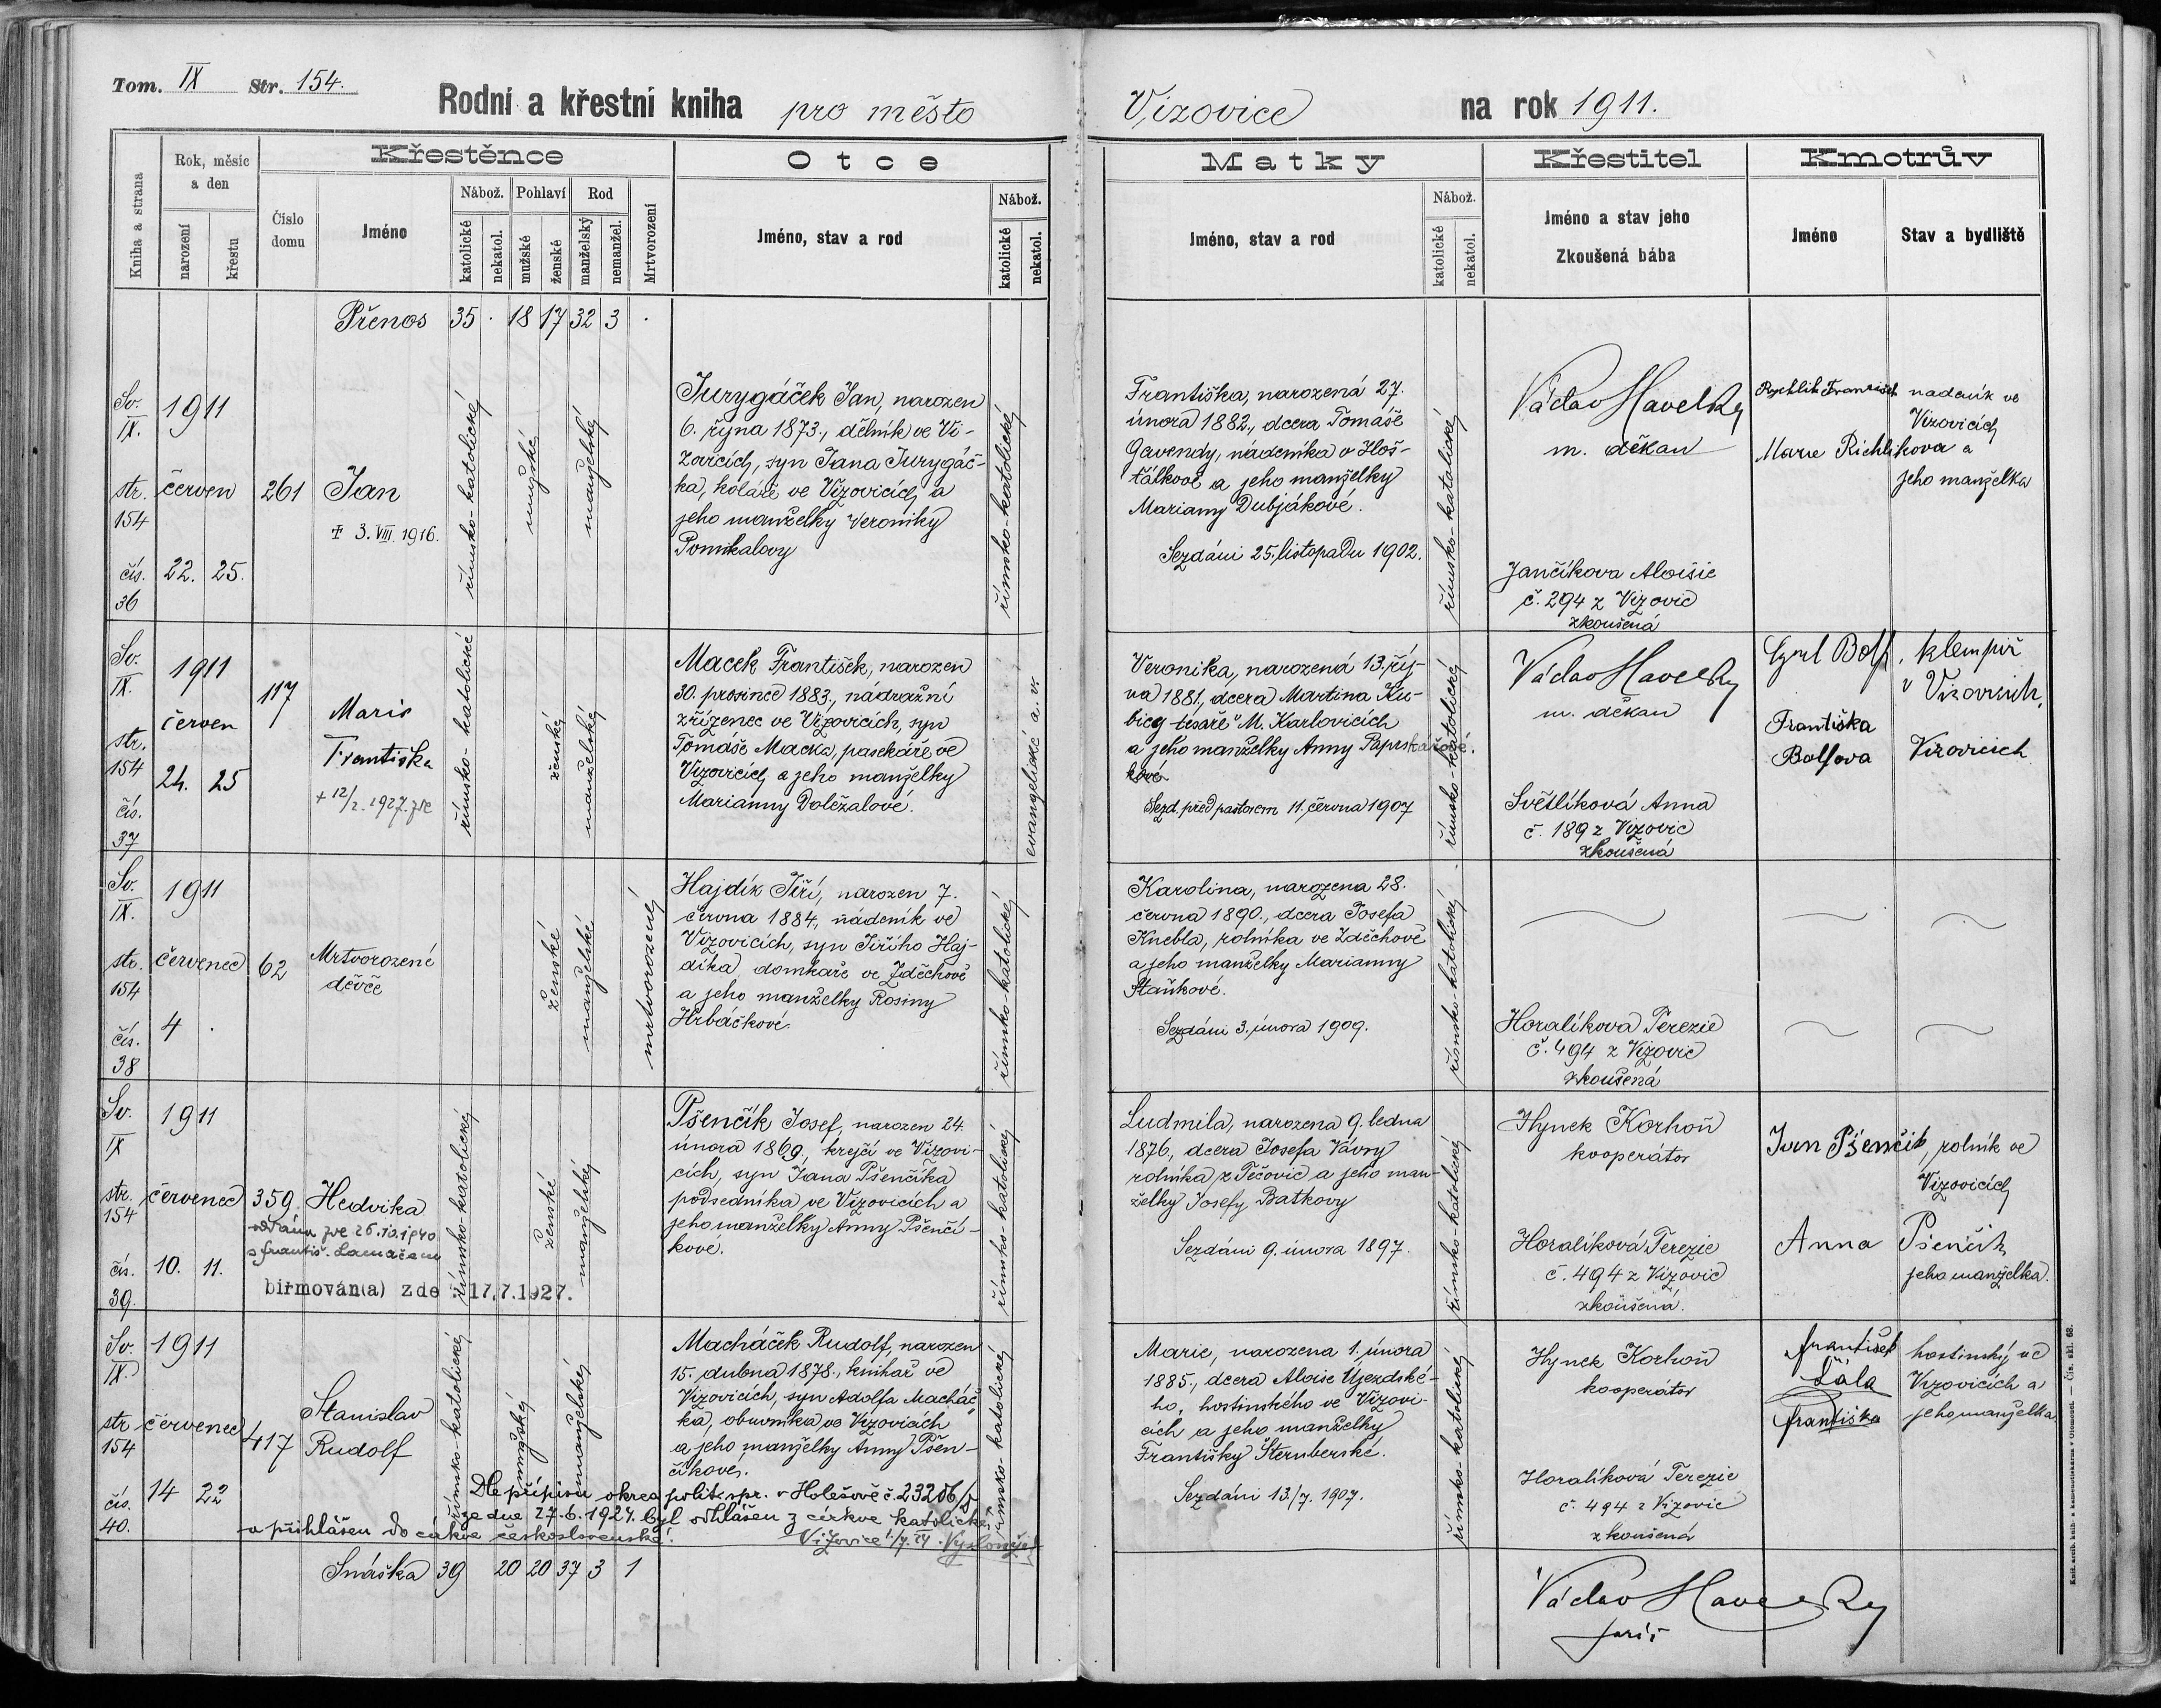 Tom. IX Str. 154.
Rodní a křestní kniha pro město Vizovice na rok 1911.
Kniha a strana
Rok, měsíc a den
narození
křestu
Číslo domu
Křestěnce
Jméno
Nábož.
katolické
nekatol.
Pohlaví
mužské
ženské
Rod
manželský
nemanžel.
Mrtvorození
Otce
Jméno, stav a rod
Nábož.
katolické
nekatol.
Matky
Jméno, stav a rod
Nábož.
katolické
nekatol.
Křestitel
Jméno a stav jeho
Zkoušená bába
Kmotrův
Jméno
Stav a bydliště
Přenos 35 . 18 17 32 3 .
Sv.
IX.
str.
154
čís.
36
1911
červen
22. 25.
261
Jan
✝ 3. VIII. 1916.
římsko-katolické
mužské
manželský
Jurygáček Jan, narozen
6. října 1873., dělník ve Vi-
zovicích, syn Jana Jurygáč-
ka, koláře ve Vizovicích a
jeho manželky Veroniky
Pomikalovy
římsko-katolické
Františka, narozená 27.
února 1882., dcera Tomáše
Gavendy, nádeníka v Hoš-
ťálkové a jeho manželky
Marianny Dubjákové.
Sezdáni 25. listopadu 1902.
římsko-katolické
Václav Havelky
m. děkan
Jančíkova Aloisie
č. 294 z Vizovic
zkoušená
Rychlik František
Marie Richlikova
nadeník ve
Vizovicích
a
jeho manželka
Sv.
IX.
str.
154
čís.
37
1911
červen
24. 25
117
Marie
Františka
+ 12/2. 1927. zde
římsko-katolické
ženské
manželské
Macek František, narozen
30. prosince 1883., nádražní
zřízenec ve Vizovicích, syn
Tomáše Macka, pasekáře ve
Vizovicích a jeho manželky
Marianny Doležalové.
evangelické a. v.
Veronika, narozená 13. říj-
na 1881., dcera Martina Ku-
bice tesaře v M. Karlovicích
a jeho manželky Anny
Sezd. před pastorem 11. června 1907
římsko-katolické
Václav Havelky
m. děkan
Světlíková Anna
č. 189 z Vizovic
zkoušená
Františka
klempíř
v Vizovicích.
Vizovicích
Sv.
IX.
str.
154
čís.
38
1911
červenec
4 .
62
Mrtvorozené
děvče
ženské
manželské
mrtvorozené
Hajdík Jiří, narozen 7.
června 1884., nádeník ve
Vizovicích, syn Jiřího Haj-
díka, domkaře ve Zděchově
a jeho manželky Rosiny
Hrbáčkové.
římsko-katolické
Karolina, narozena 28.
června 1890., dcera Josefa
Knebla, rolníka ve Zděchově
a jeho manželky Marianny
Staňkové.
Sezdáni 3. února 1909.
římsko-katolické
Horalíkova Terezie
č. 494 z Vizovic
zkoušená
Sv.
IX
str.
154
čís.
39.
1911
červenec
10. 11.
359.
Hedvika
oddána zde 26.10.1940
s Františ. Lamačem
biřmován(a) zde : 17.7.1927.
římsko-katolické
ženské
manželský
Pšenčík Josef, narozen 24.
února 1869, krejčí ve Vizovi-
cích, syn Jana Pšenčíka
podsedníka ve Vizovicích a
jeho manželky Anny Pšenčí-
kové.
římsko-katolické
Ludmila, narozena 9. ledna
1876, dcera Josefa Vávry
rolníka z Tečovic a jeho man-
želky Josefy Baťkovy
Sezdáni 9. února 1897.
římsko-katolické
Hynek Korhoň
kooperátor
Horalíková Terezie
č. 494 z Vizovic
zkoušená.
Pšenčik, rolník ve
Vizovicích
Anna Pšenčik
jeho manželka.
Sv.
IX.
str
154
čís.
40.
1911
červenec
14 22
417
Stanislav
Rudolf
římsko-katolické
mužský
manželský
Macháček Rudolf, narozen
15. dubna 1878., knihař ve
Vizovicích, syn Adolfa Macháč-
ka, obuvníka ve Vizovicích
a jeho manželky Anny Pšen-
číkové.
římsko-katolické
Dle přípisu okres. polit. spr. v Holešově č. 23206/5
ze dne 27.6.1924. byl odhlášen z církve katolické
a přihlášen do církve československé.
Marie, narozena 1. února
1885., dcera Aloise Újezdské-
ho, hostinského ve Vizovi-
cích a jeho manželky
Františky Šternberské.
Sezdáni 13./7. 1907.
římsko-katolické
Hynek Korhoň
kooperátor
Horalíková Terezie
č. 494 z Vizovic
zkoušená
František
Šála
Františka
hostinský ve
Vizovicích a
jeho manželka
Snáška 39 20 20 37 3 1
Václav Havelky
farář